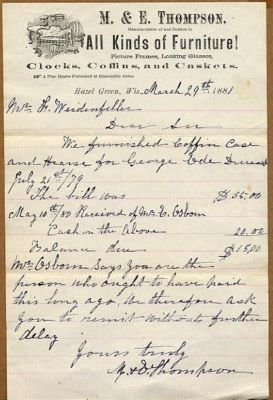 M. & E. THOMPSON,
Manufacturers of and Dealers in
All Kinds of Furniture!
Picture Frames, Looking Glasses,
Clocks, Coffins, and Caskets.
A Fine Hearse Furnished at Reasonable Rates.
Hazel Green, Wis., March 29th 1881
Mr. H. Weidenfeller
Dear Sir
We furnished Coffin Case
and Hearse for George
July 21st/79
The bill was $35,00
May 10th/80 Received of Mr. C. Osborn
Cash on the above 20,00
Balance due $15,00
Mr. Osborn Says You are the
person who ought to have paid
this long ago We therefore ask
you to remit without further
delay
Yours truly
M & E Thompson